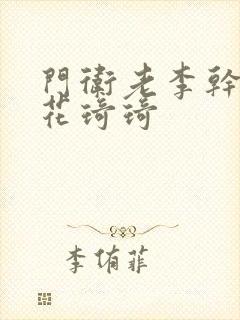 門衛老李幹
花琦琦
李侑菲